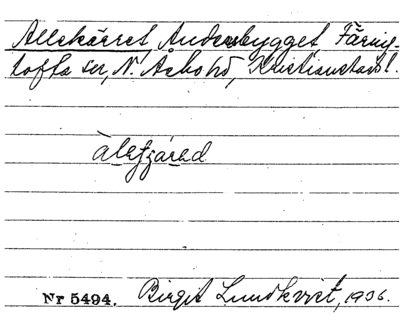 Allekärret Andersbygget Färing-
tofta sn, N. Åsbo hd, Kristianstads l.
Nr 5494. Birgit Lundkvist, 1936.